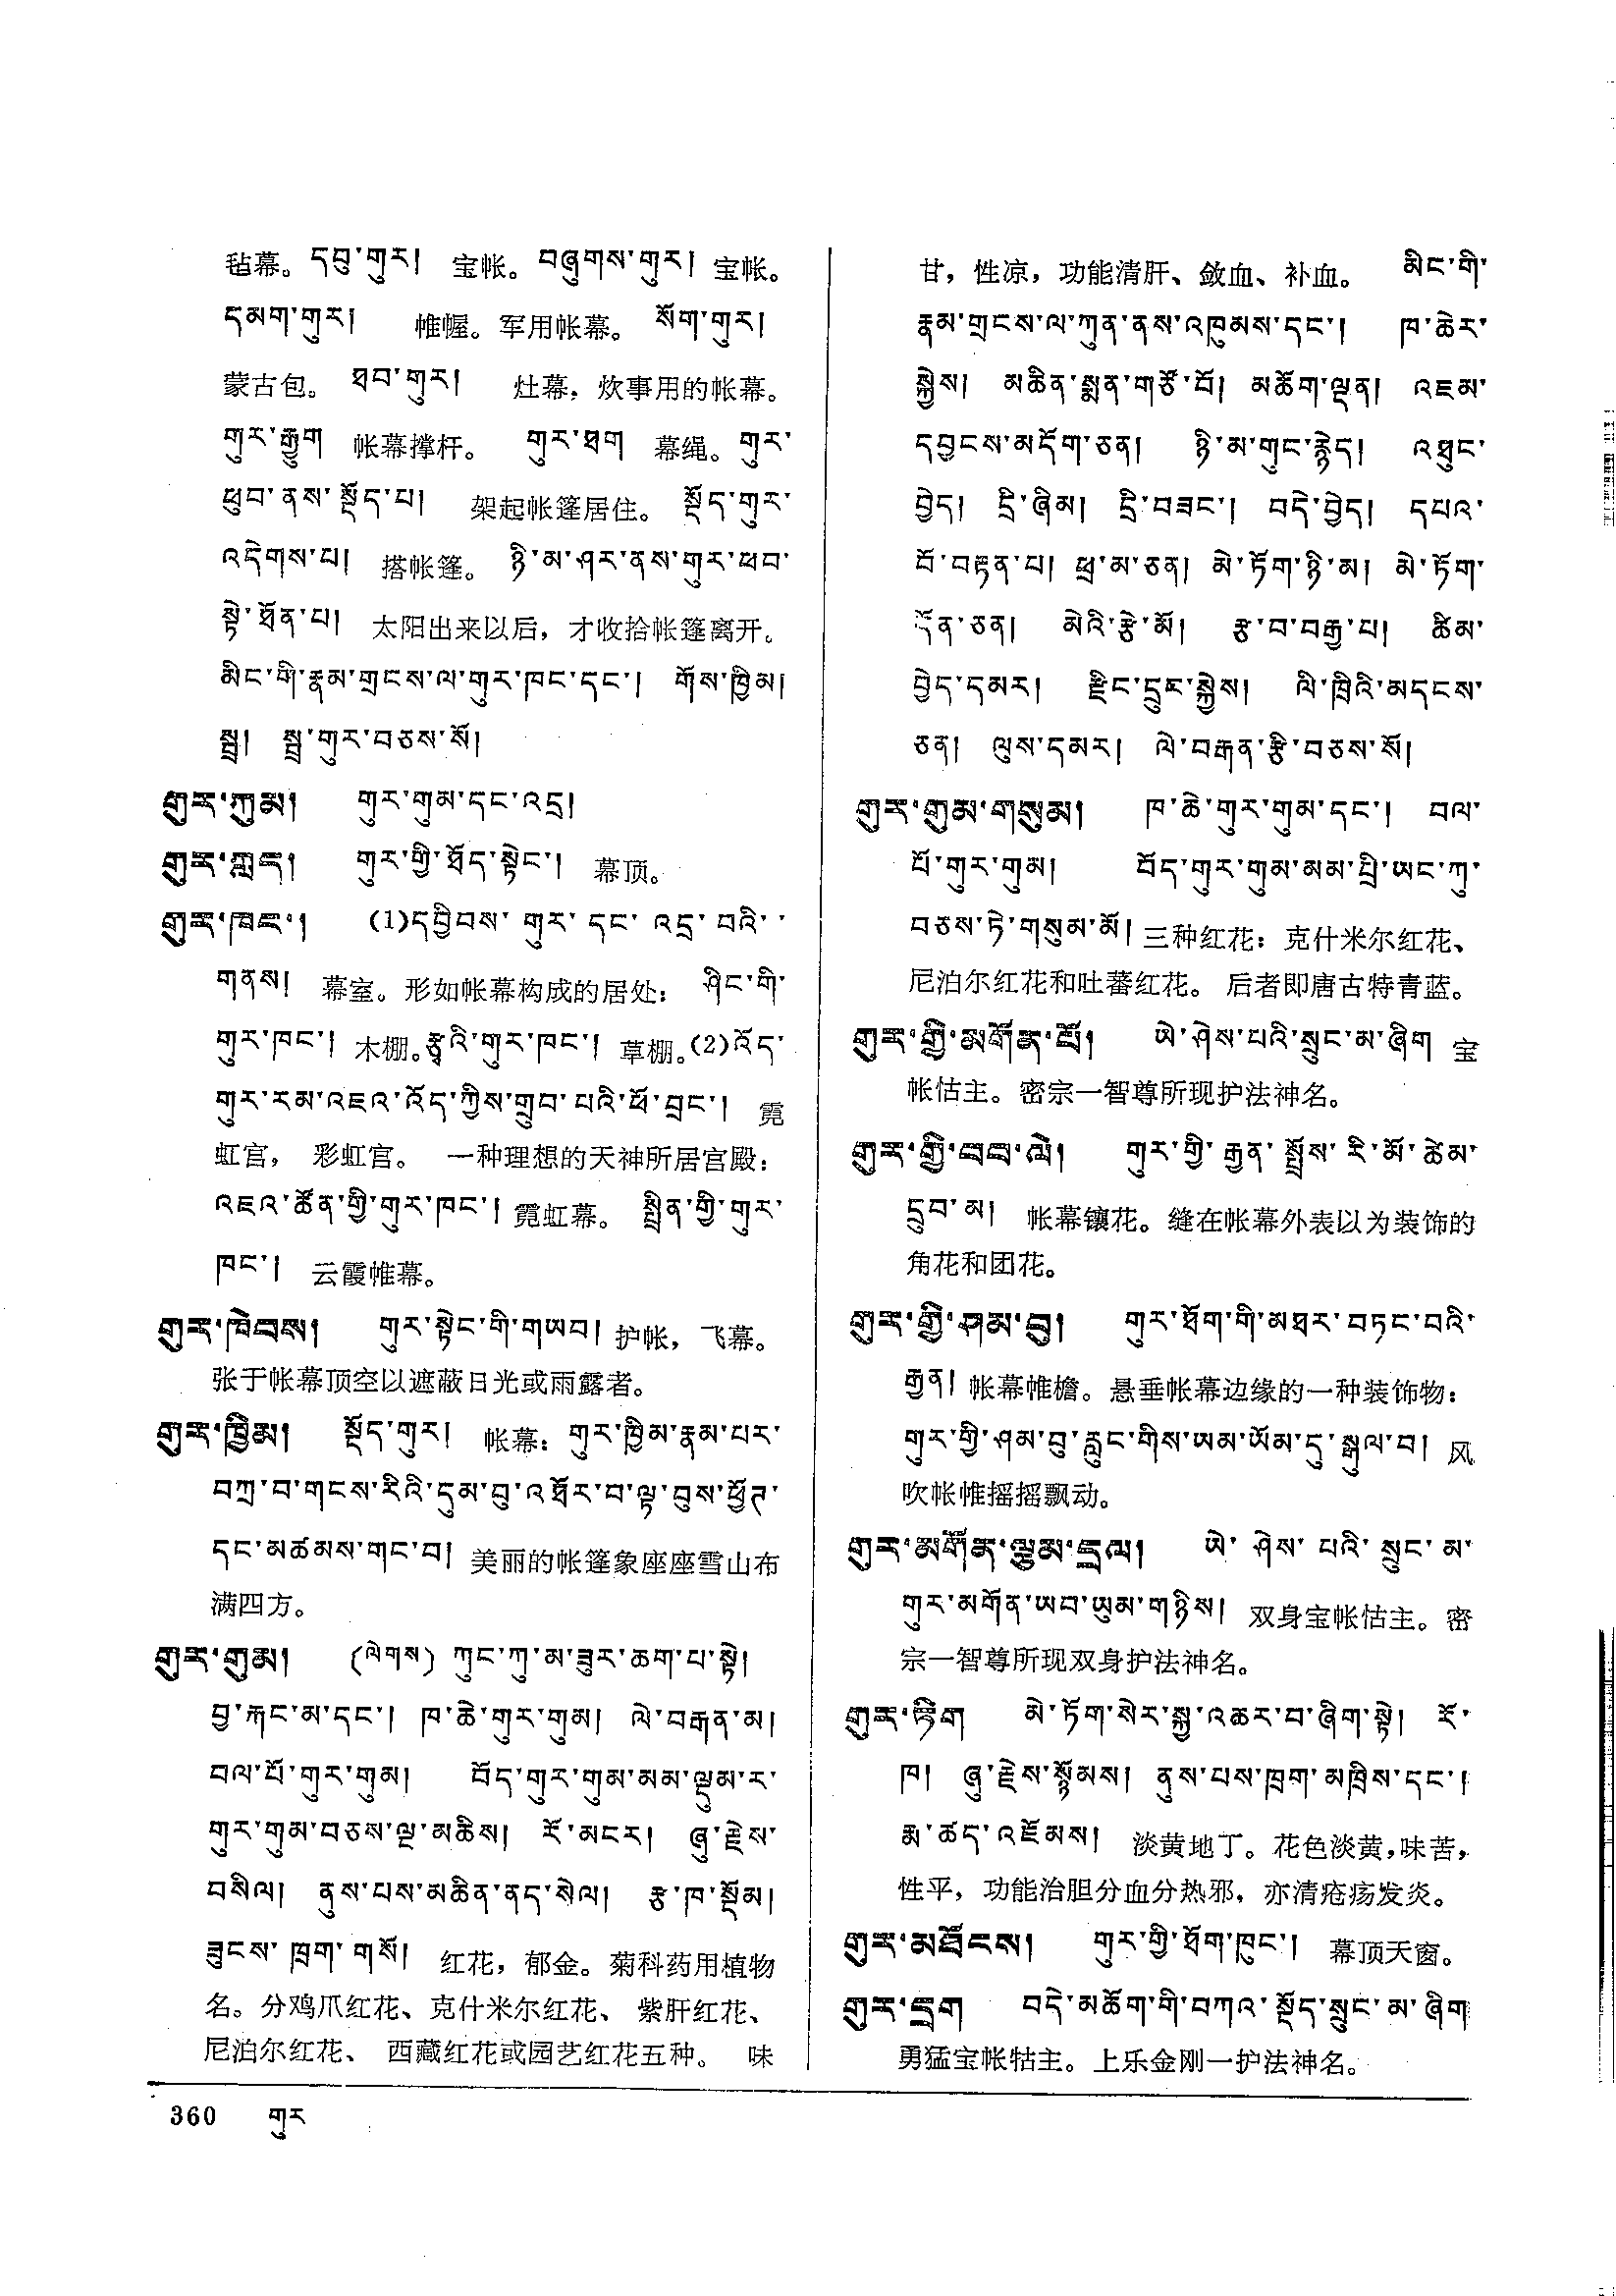 毡幕。དབུ་གུར། 宝帐。བཞུགས་གུར། 宝帐。
དམག་གུར། 帷幄。军用帐幕。 སོག་གུར།
蒙古包。 ཐབ་གུར། 灶幕，炊事用的帐幕。
གུར་རྒྱུག 帐幕撑杆。 གུར་ཐག 幕绳。གུར་
ཕུབ་ནས་སྡོད་པ། 架起帐篷居住。 སྡོད་གུར་
འདེགས་པ། 搭帐篷。 ཉི་མ་ཤར་ནས་གུར་ཕབ་
སྟེ་ཐོན་པ། 太阳出来以后，才收拾帐篷离开。
མིང་གི་རྣམ་གྲངས་ལ་གུར་ཁང་དང་། གོས་ཁྱིམ།
སྦྲ། སྦྲ་གུར་བཅས་སོ།
གུར་ཀུམ། གུར་གུམ་དང་འདྲ།
གུར་ཀླད། གུར་གྱི་ཐོད་སྟེང་། 幕顶。
གུར་ཁང་། (1)དབྱིབས་ གུར་ དང་ འདྲ་ བའི་
གནས། 幕室。形如帐幕构成的居处： ཤིང་གི་
གུར་ཁང་། 木棚。རྩྭའི་གུར་ཁང་། 草棚。(2)འོད་
གུར་རམ་འཇའ་འོད་ཀྱིས་གྲུབ་པའི་ཕོ་བྲང་། 霓
虹宫， 彩虹宫。 一种理想的天神所居宫殿：
འཇའ་ཚོན་གྱི་གུར་ཁང་། 霓虹幕。 སྤྲིན་གྱི་གུར་
ཁང་། 云霞帷幕。
གུར་ཁེབས། གུར་སྟེང་གི་གཡབ། 护帐，飞幕。
张于帐幕顶空以遮蔽日光或雨露者。
གུར་ཁྱིམ། སྡོད་གུར། 帐幕：གུར་ཁྱིམ་རྣམ་པར་
བཀྲ་བ་གངས་རིའི་དུམ་བུ་འཐོར་བ་ལྟ་བུས་ཕྱོཊ་
དང་མཚམས་གང་བ། 美丽的帐篷象座座雪山布
满四方。
གུར་གུམ། (ལེགས) ཀུང་ཀུ་མ་ཟུར་ཆག་པ་སྟེ།
བྱ་རྐང་མ་དང་། ཁ་ཆེ་གུར་གུམ། ལེ་བརྒན་མ།
བལ་པོ་གུར་གུམ། བོད་གུར་གུམ་མམ་ལྡུམ་ར་
གུར་གུམ་བཅས་ལྔ་མཆིས། རོ་མངར། ཞུ་རྗེས་
བསིལ། ནུས་པས་མཆིན་ནད་སེལ། རྩ་ཁ་སྡོམ།
ཟུངས་ ཁྲག་ གསོ། 红花，郁金。菊科药用植物
名。分鸡爪红花、克什米尔红花、 紫肝红花、
尼泊尔红花、 西藏红花或园艺红花五种。 味
甘，性凉，功能清肝、敛血、补血。 མིང་གི་
རྣམ་གྲངས་ལ་ཀུན་ནས་འཁུམས་དང་། ཁ་ཆེར་
སྐྱེས། མཆིན་སྨན་གཙོ་བོ། མཆོག་ལྡན། འཇམ་
དབྱངས་མདོག་ཅན། ཉི་མ་གུང་རྙེད། འཐུང་
བྱེད། དྲི་ཞིམ། དྲི་བཟང་། བདེ་བྱེད། དཔའ་
བོ་བརྟན་པ། ཕྲ་མ་ཅན། མེ་ཏོག་ཉི་མ། མེ་ཏོག་
དོན་ཅན། མེའི་རྩེ་མོ། རྩ་བ་བརྒྱ་པ། ཚིམ་
བྱེད་དམར། རྫིང་དྲུང་སྐྱེས། ལི་ཁྲིའི་མདངས་
ཅན། ལུས་དམར། ལེ་བརྒན་རྩི་བཅས་སོ།
གུར་གུམ་གསུམ། ཁ་ཆེ་གུར་གུམ་དང་། བལ་
པོ་གུར་གུམ། བོད་གུར་གུམ་མམ་པྲི་ཡང་ཀུ་
བཅས་ཏེ་གསུམ་མོ། 三种红花：克什米尔红花、
尼泊尔红花和吐蕃红花。 后者即唐古特青蓝。
གུར་གྱི་མགོན་པོ། ཡེ་ཤེས་པའི་སྲུང་མ་ཞིག 宝
帐怙主。密宗一智尊所现护法神名。
གུར་གྱི་བབ་ལེ། གུར་གྱི་ རྒྱན་ སྤྲོས་ རི་མོ་ཚེམ་
དྲུབ་མ། 帐幕镶花。缝在帐幕外表以为装饰的
角花和团花。
གུར་གྱི་ཤམ་བུ། གུར་ཐོག་གི་མཐར་བཏང་བའི་
རྒྱན། 帐幕帷檐。悬垂帐幕边缘的一种装饰物：
གུར་གྱི་ཤམ་བུ་རླུང་གིས་ཡམ་ཡོམ་དུ་སྒུལ་བ། 风
吹帐帷摇摇飘动。
གུར་མགོན་ལྕམ་དྲལ། ཡེ་ ཤེས་ པའི་ སྲུང་ མ་
གུར་མགོན་ཡབ་ཡུམ་གཉིས། 双身宝帐怙主。密
宗一智尊所现双身护法神名。
གུར་ཏིག མེ་ཏོག་སེར་སྐྱ་འཆར་བ་ཞིག་སྟེ། རོ་
ཁ། ཞུ་རྗེས་སྙོམས། ནུས་པས་ཁྲག་མཁྲིས་དང་།
རྨ་ཚད་འཇོམས། 淡黄地丁。花色淡黄，味苦，
性平，功能治胆分血分热邪，亦清疮疡发炎。
གུར་མཐོངས། གུར་གྱི་ཐོག་ཁུང་། 幕顶天窗。
གུར་དྲག བདེ་མཆོག་གི་བཀའ་སྡོད་སྲུང་མ་ཞིག
勇猛宝帐牯主。上乐金刚一护法神名。
360 གུར